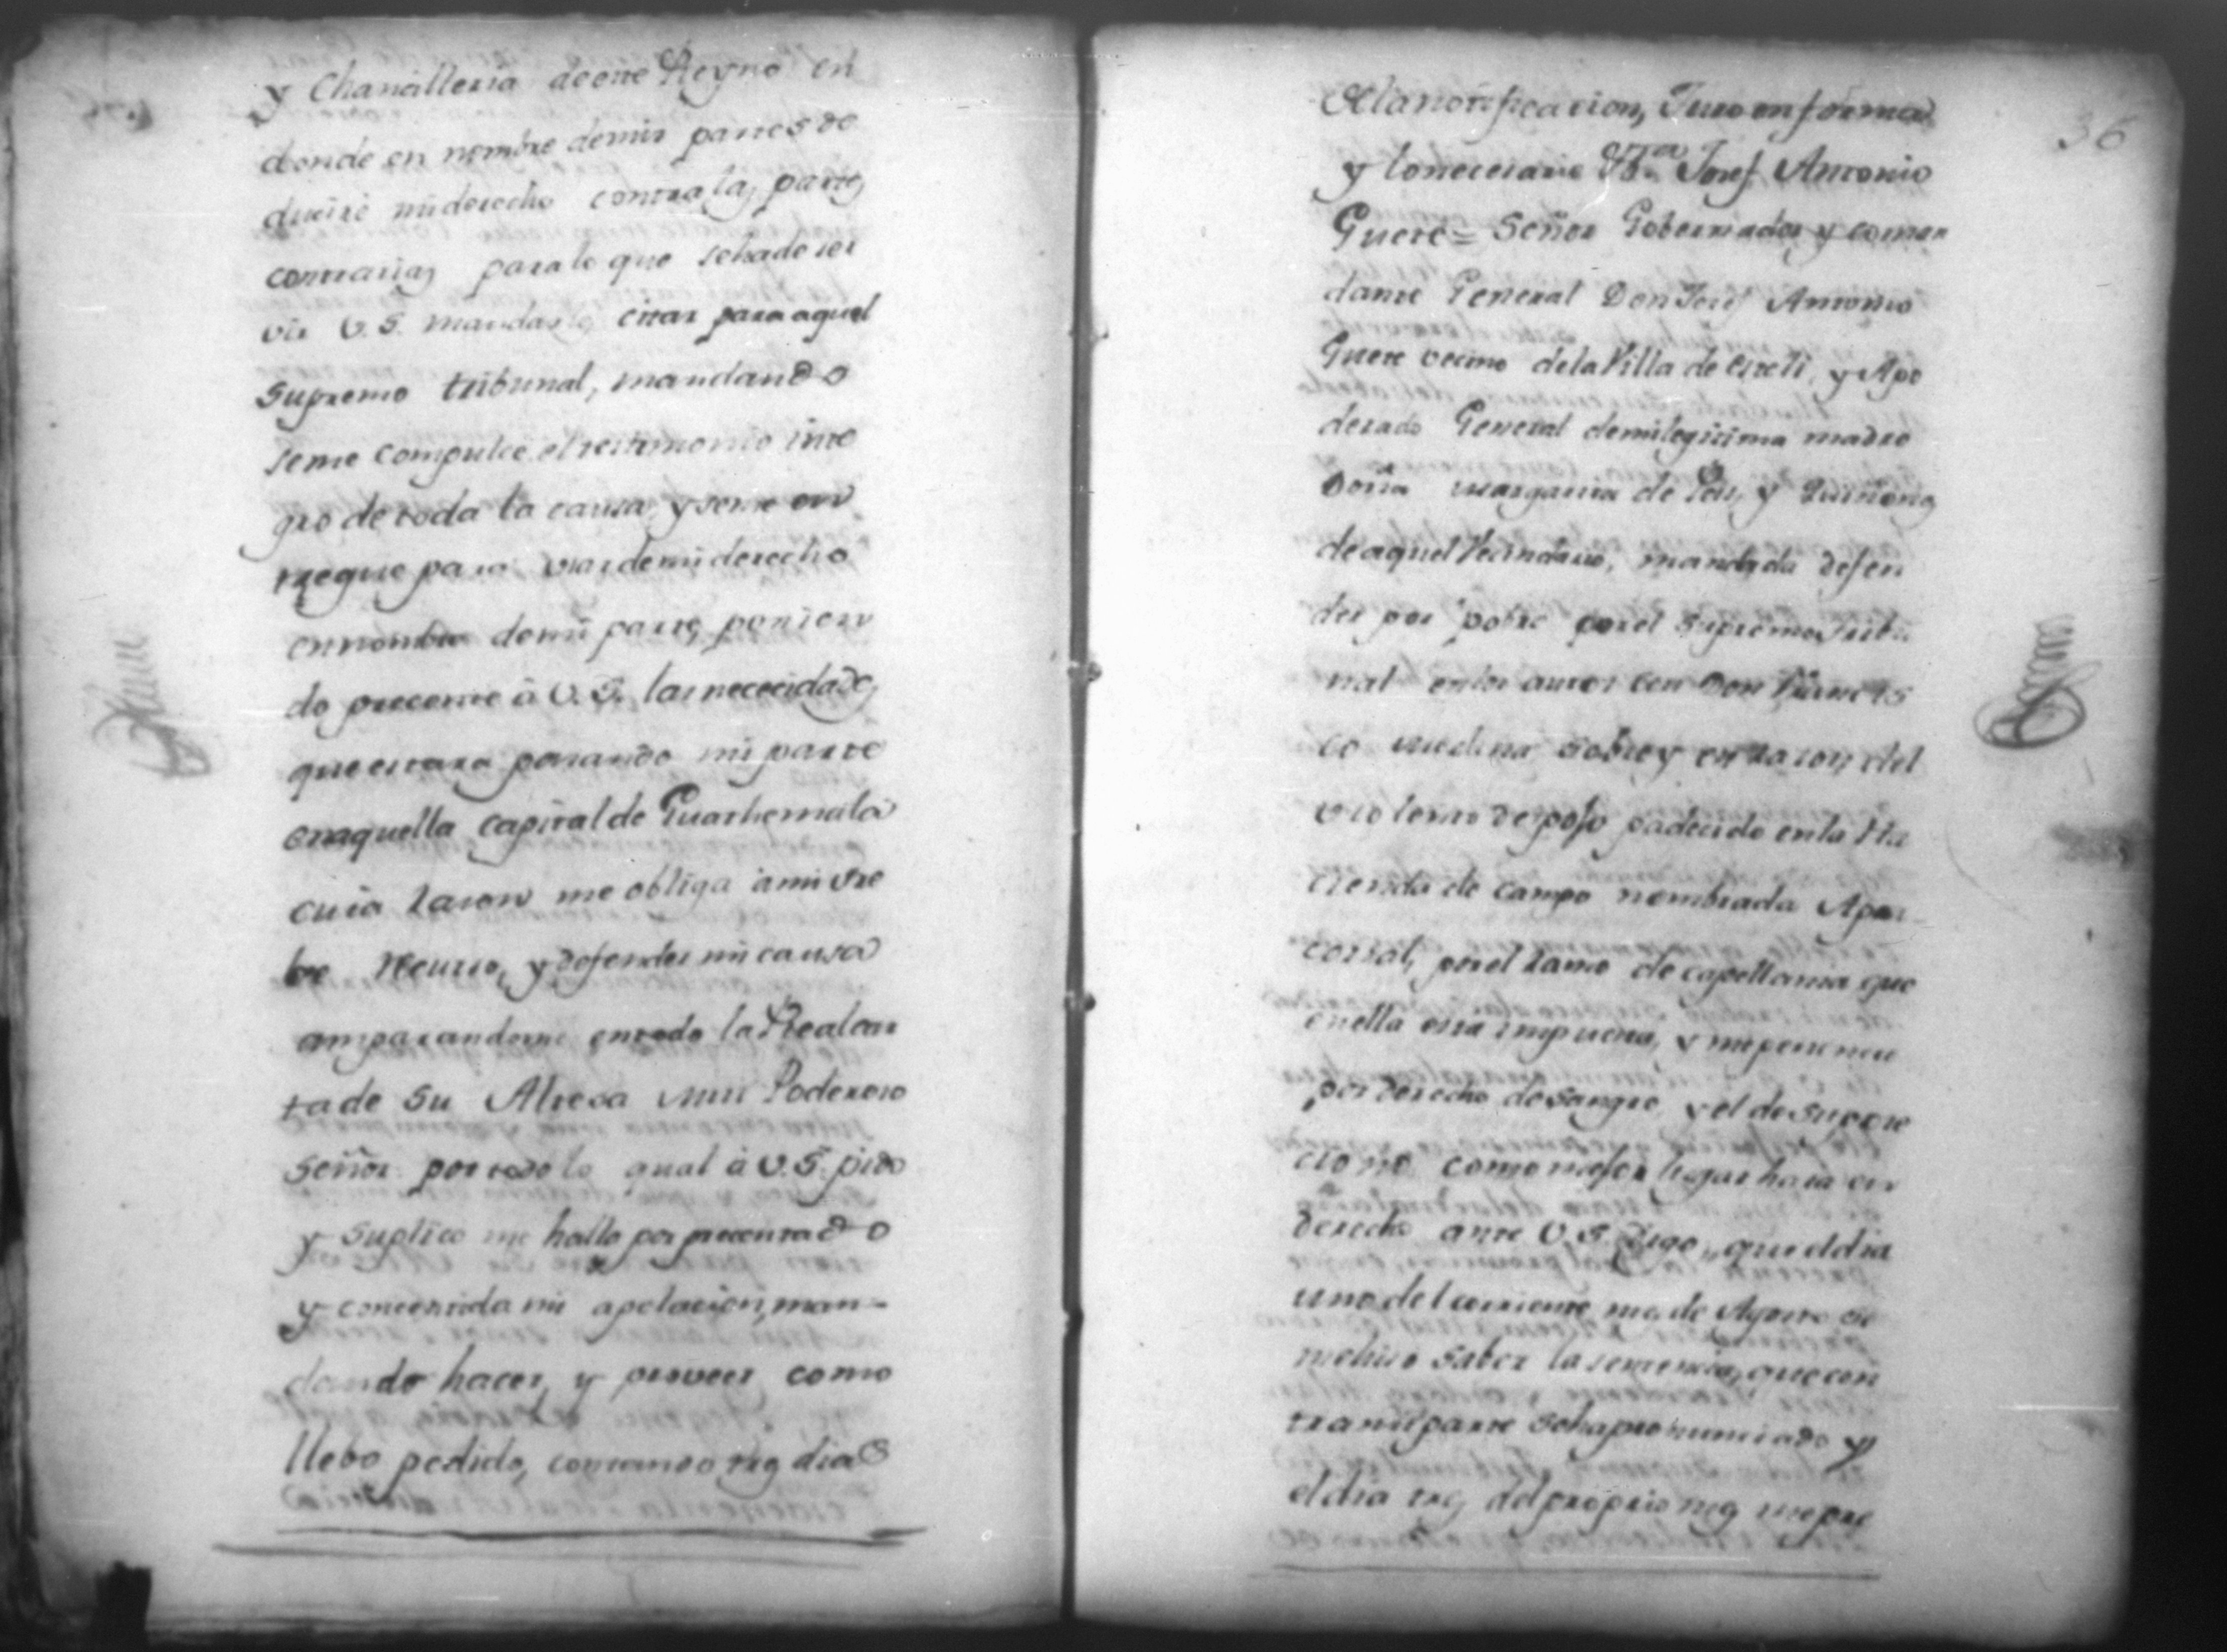 y Chancilleria de este Reyno en
donde en nombre de mis partes de
duciré mi derecho contra las partes
contrarias para lo que se ha de ser
vir V.S. mandarles citar para aquel
supremo tribunal, mandando
seme compulse el testimonio inte
gro de toda la causa, y seme en
tregue para usar de mi derecho
en nombre de mi parte, ponien
do precente â V.S. las nececidades
que estara pasando mi parte
en aquella capital de Guathemala
cuia razon me obliga a mi
recurso, y defender mi causa
amparandome en todo la Real car
ta de Su Altesa Mui Poderoso
Señor por todo lo qual â V.S. pido
y suplico me halla por precentado
y concentida mi apelacion, man-
dando hacer, y proveer como
llebo pedido, contando tres dias
36
de la notificacion, Juro en forma
y lo necesario Josef Antonio
Guete = Señor Gobernador y coman
dante General Don Josef Antonio
Guete vecino de la Villa de y Apo
derado General de mi legitima madre
Doña Margarita de y Quiñones
de aquel Vecindario, mandada defen
der por pobre por el supremo tribu
nal en los autos con Don Francis
co Medina sobre y en razon, del
violento despojo padecido en la Ha
cienda de campo nombrada Apa
corral, por el ramo de capellania que
en ella esta impuesta, y me pertenece
por derecho de sangre, y el de
como mejor lugar haia en
derecho ante V.S. Digo, que el dia
uno del corriente mes de Agosto se
me hiso saber la sentencia, que con
tra mi parte se ha pronunciado y
el dia tres del proprio mes me pre